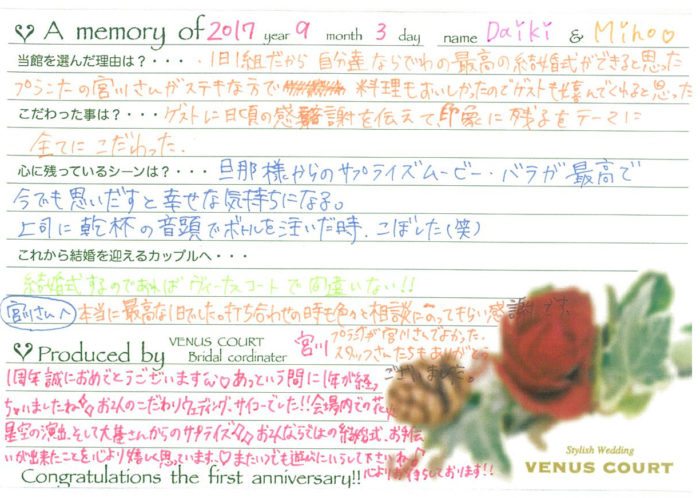 A memory of 2017 year 9 month 3 day name Daiki & Miho
当館を選んだ理由は?・・・・1日1組だから自分達ならでわの最高の結婚式ができると思った
プランナーの宮川さんがステキな方で 料理もおいしかったのでゲストも喜んでくれると思った
こだわった事は?・・・・ゲストに日頃の感謝を伝えて、印象に残るをテーマに
全てにこだわった。
心に残っているシーンは?・・・旦那様からのサプライズムービー・バラが最高で
今でも思いだすと幸せな気持ちになる。
上司に乾杯の音頭でボトルを注いだ時、こぼした(笑)
これから結婚を迎えるカップルへ・・・
結婚式するのであればヴィーナスコートで間違いない!!
宮川さんへ 本当に最高な1日でした。打ち合わせの時も色々と相談にのってもらい感謝です。
プランナーが宮川さんでよかった。
スタッフさんたちもありがとう
ございました。
Produced by VENUS COURT Bridal cordinater 宮川
1周年誠におめでとうございます♡あっという間に1年が経っ
ちゃいましたね お2人のこだわりウェディング、サイコーでした!!会場内での花火
星空の演出、そして大基さんからのサプライズ お2人ならではの結婚式、お手伝
いが出来たことを心より嬉しく思っています。♡またいつでも遊びにいらして下さいね
心よりお待ちしております!!
Congratulations the first anniversary!!
Stylish Wedding
VENUS COURT